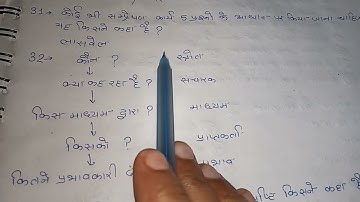 31→ कोई भी सम्प्रेषण कार्य 5 प्रश्नों के आधार पर किया जाना चाहिए
यह किसने कहा है ?
लासवेल
32→ कौन ? स्रोत
क्या कह रहा है ? संचारक
किस माध्यम द्वारा ? माध्यम
किसको ? प्राप्तकर्ता
कितने प्रभावकारी प्रभाव
किसने कहा है